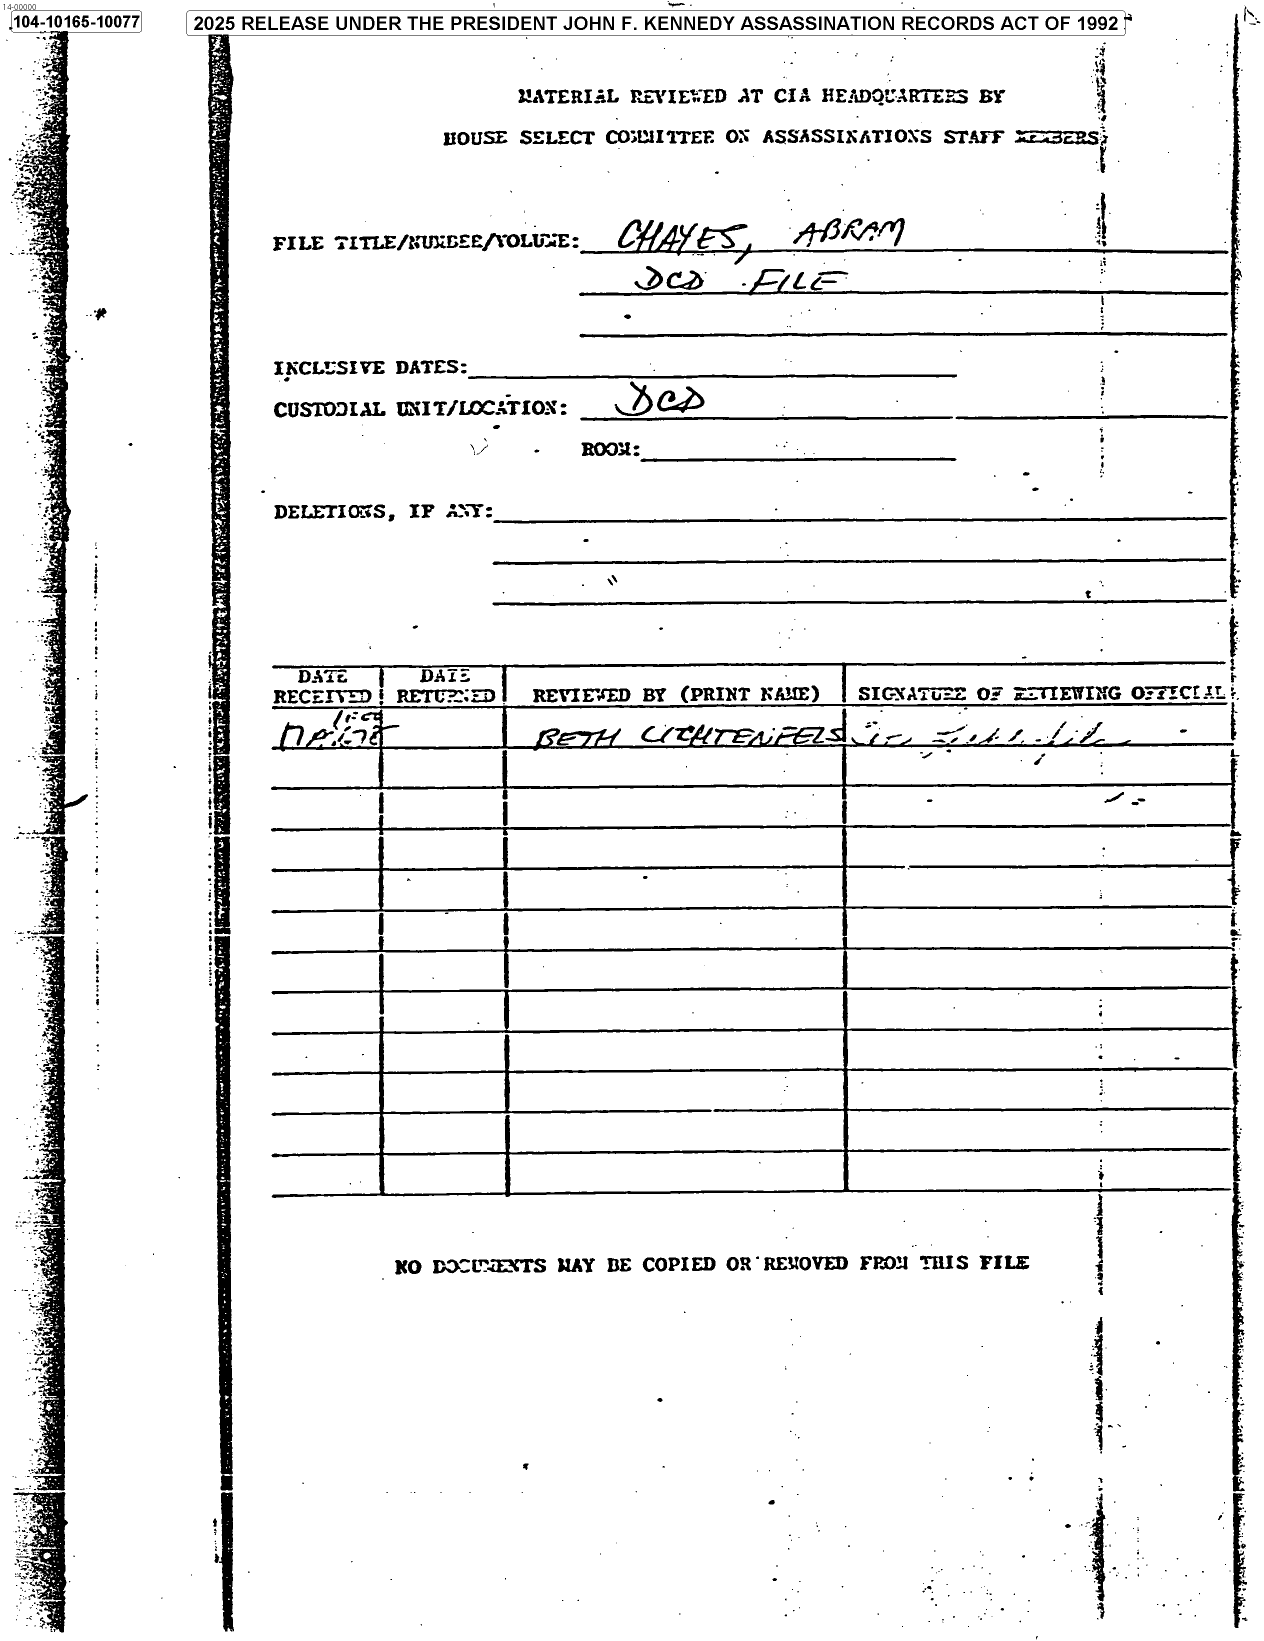 14-00000
104-10165-10077
2025 RELEASE UNDER THE PRESIDENT JOHN F. KENNEDY ASSASSINATION RECORDS ACT OF 1992
MATERIAL REVIEWED AT CIA HEADQUARTERS BY
HOUSE SELECT COMMITTEE ON ASSASSINATIONS STAFF MEMBERS
FILE TITLE/NUMBER/VOLUME: CHAYES, ABRAM
DCD FILE
INCLUSIVE DATES:
CUSTODIAL UNIT/LOCATION: DCD
ROOM:
DELETIONS, IF ANY:
DATE RECEIVED DATE RETURNED REVIEWED BY (PRINT NAME) SIGNATURE OF REVIEWING OFFICIAL
BETH LICHTENFELS
NO DOCUMENTS MAY BE COPIED OR REMOVED FROM THIS FILE